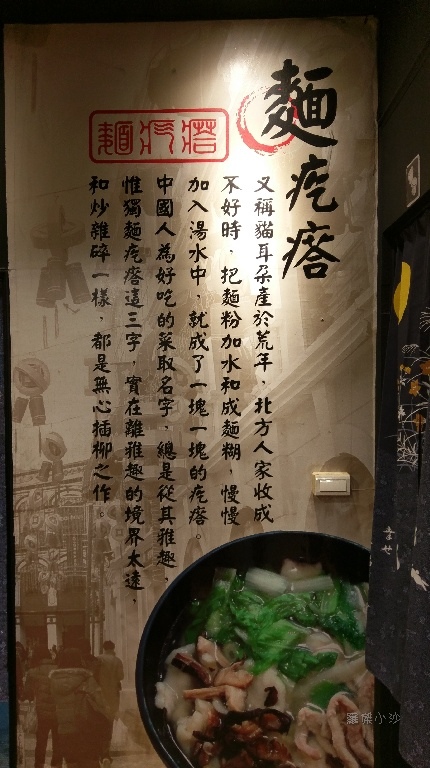 麵疙瘩
麵疙瘩
又稱貓耳朵產於荒年，北方人家收成
不好時，把麵粉加水和成麵糊，慢慢
加入湯水中，就成了一塊一塊的疙瘩。
中國人為好吃的菜取名字，總是從其雅趣，
惟獨麵疙瘩這三字，實在離雅趣的境界太遠，
和炒雜碎一樣，都是無心插柳之作。
羅傑小沙